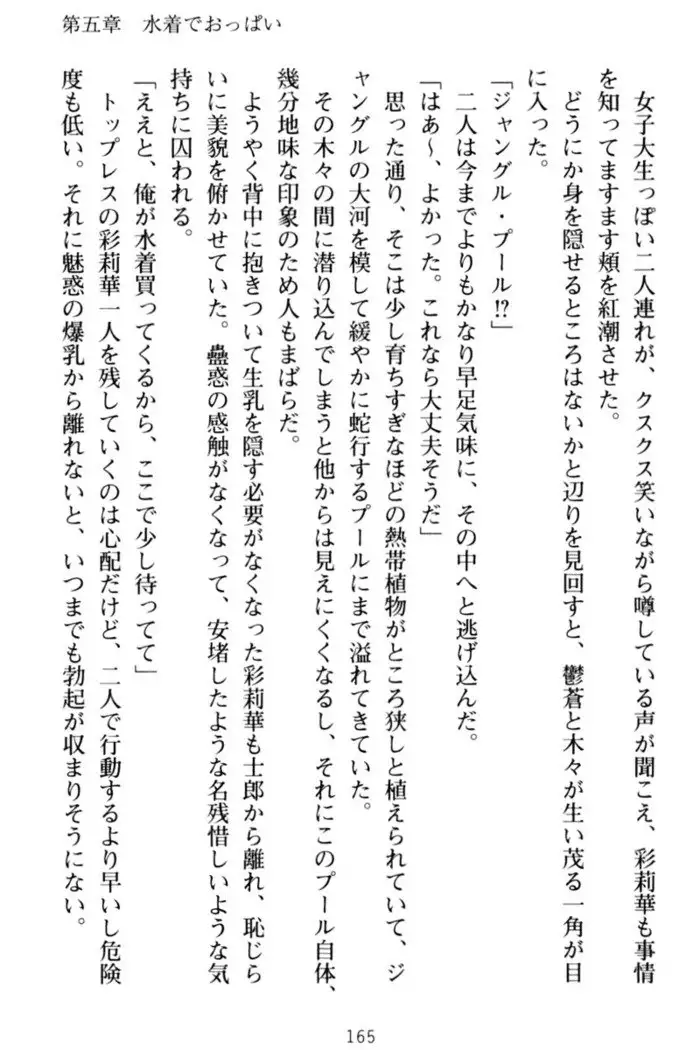 第五章　水着でおっぱい
　女子大生っぽい二人連れが、クスクス笑いながら噂している声が聞こえ、彩莉華も事情
を知ってますます頬を紅潮させた。
　どうにか身を隠せるところはないかと辺りを見回すと、鬱蒼と木々が生い茂る一角が目
に入った。
「ジャングル・プール!?」
　二人は今までよりもかなり早足気味に、その中へと逃げ込んだ。
「はあ〜、よかった。これなら大丈夫そうだ」
　思った通り、そこは少し育ちすぎなほどの熱帯植物がところ狭しと植えられていて、ジ
ャングルの大河を模して緩やかに蛇行するプールにまで溢れてきていた。
　その木々の間に潜り込んでしまうと他からは見えにくくなるし、それにこのプール自体、
幾分地味な印象のため人もまばらだ。
　ようやく背中に抱きついて生乳を隠す必要がなくなった彩莉華も士郎から離れ、恥じら
いに美貌を俯かせていた。蠱惑の感触がなくなって、安堵したような名残惜しいような気
持ちに囚われる。
「ええと、俺が水着買ってくるから、ここで少し待ってて」
　トップレスの彩莉華一人を残していくのは心配だけど、二人で行動するより早いし危険
度も低い。それに魅惑の爆乳から離れないと、いつまでも勃起が収まりそうにない。
165